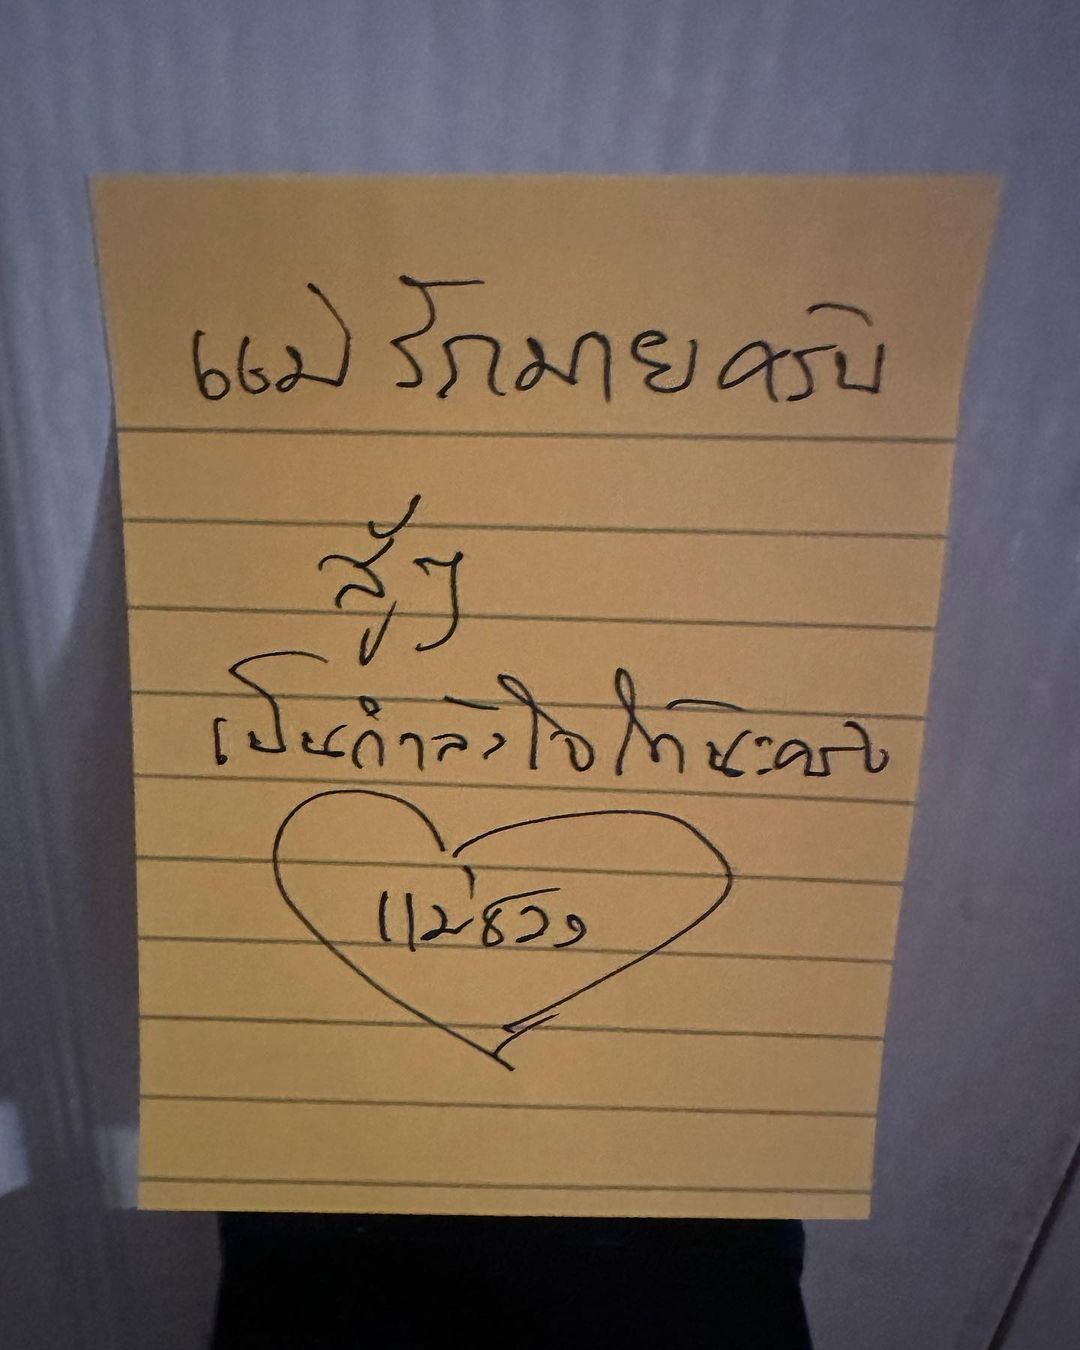 แม่ รักมาย ครับ
สู้ๆ
เป็นกำลังใจให้นะครับ
แม่